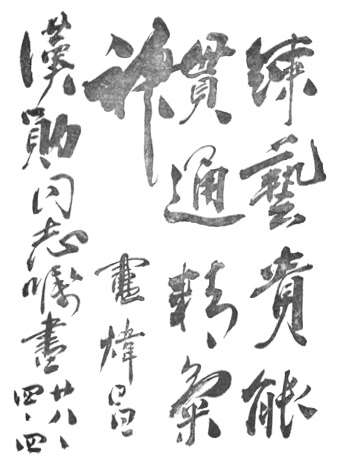 練藝貴能
貫通精氣
神
盧煒昌
漢勛同志囑書
廿八、四、四